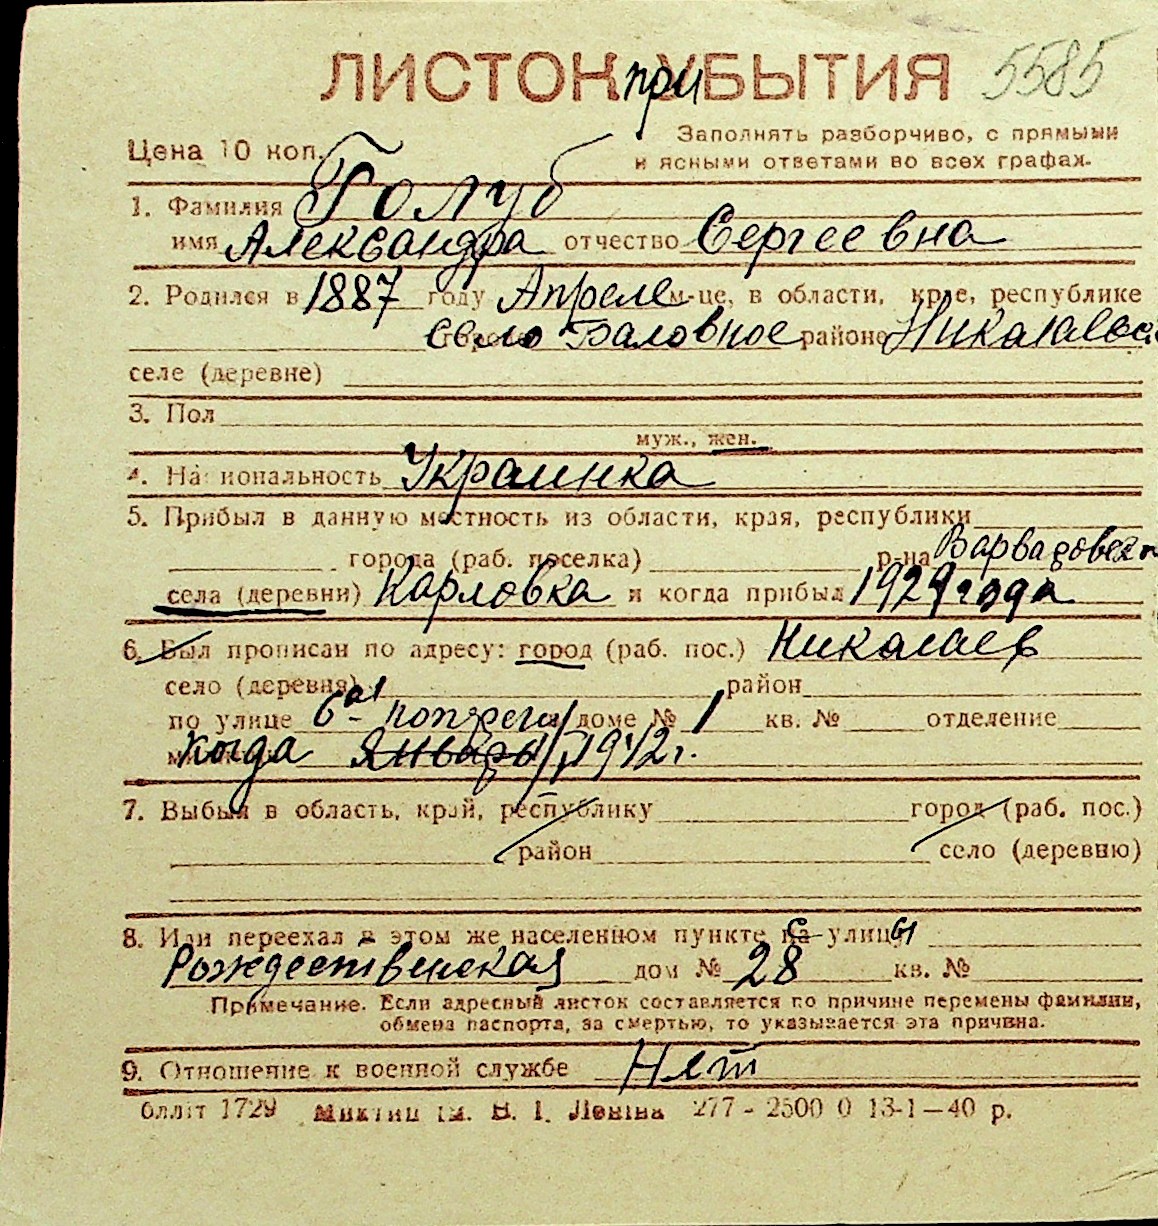 ЛИСТОК приУБЫТИЯ 5585
Цена 10 коп.
Заполнять разборчиво, с прямыми
и ясными ответами во всех графах.
1. Фамилия Голуб
имя Александра отчество Сергеевна
2. Родился в 1887 году Апреле м-це, в области, крае, республике
Село Баловное районе
селе (деревне)
3. Пол
муж., жен.
4. Национальность Украинка
5. Прибыл в данную местность из области, края, республики
города (раб. поселка) р-на
села (деревни) Карловка и когда прибыл 1929 года
6. Был прописан по адресу: город (раб. пос.) Николаев
село (деревня) район
по улице 6ая доме № 1 кв. № отделение
когда Январь 1942 г.
7. Выбыл в область, край, республику город (раб. пос.)
район село (деревню)
8. Или переехал в этом же населенном пункте на с улицы
Рождественская дом № 28 кв. №
Примечание. Если адресный листок составляется по причине перемены фамилии,
обмена паспорта, за смертью, то указывается эта причина.
9. Отношение к военной службе Нет
1729 В. І. Леніна 277 - 2500 0 13-1-40 р.